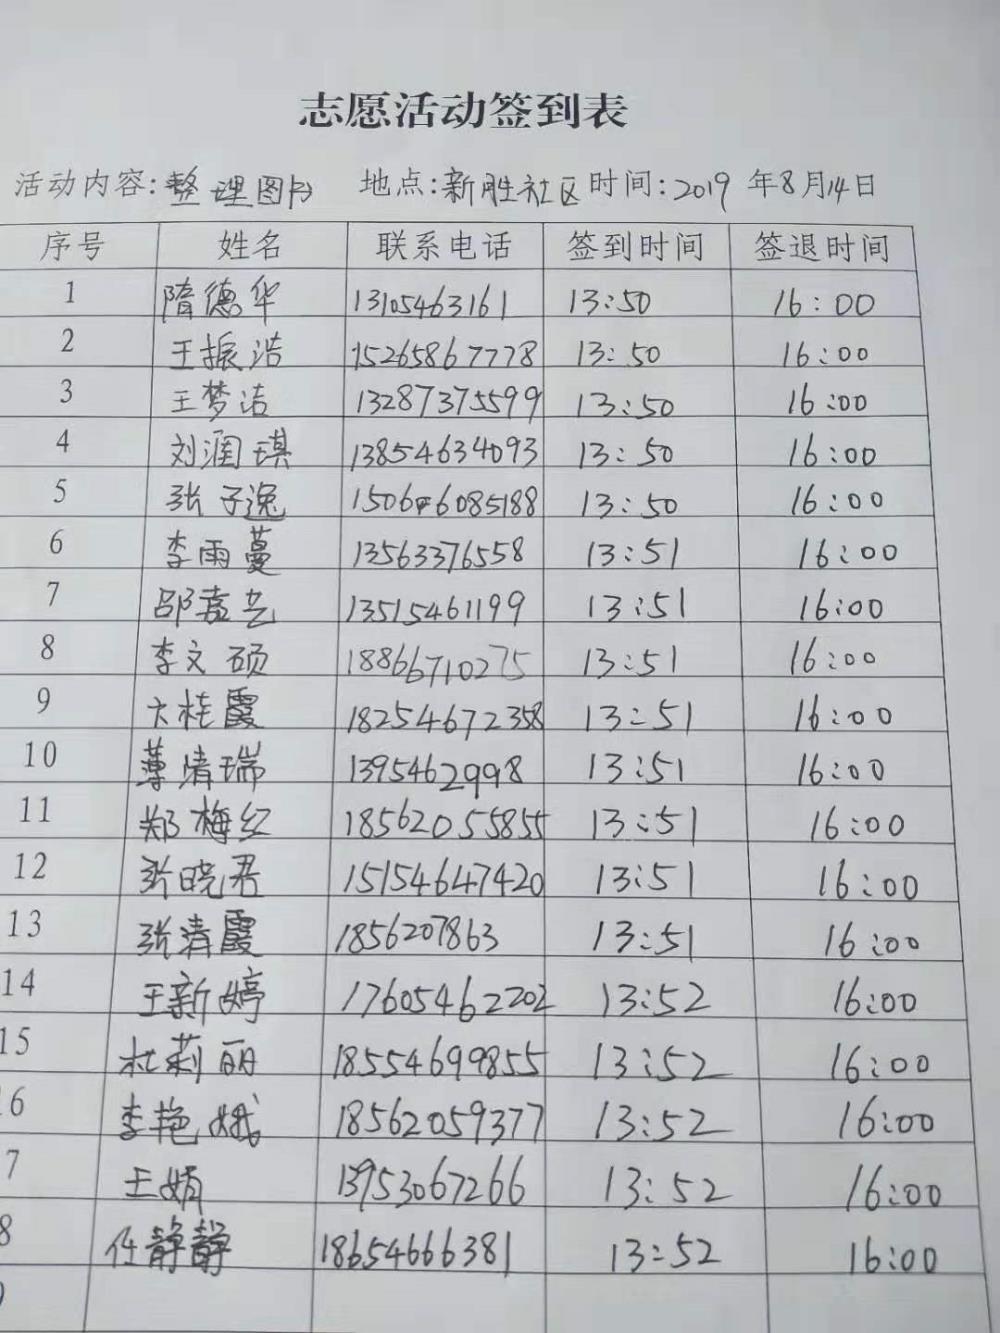 志愿活动签到表
活动内容:整理图书 地点:新胜社区 时间:2019 年8月14日
序号 姓名 联系电话 签到时间 签退时间
1 隋德华 13105463161 13:50 16:00
2 王振浩 15265867778 13:50 16:00
3 王梦洁 13287375599 13:50 16:00
4 刘润琪 13854634093 13:50 16:00
5 张子逸 150646085188 13:50 16:00
6 李雨蔓 13563376558 13:51 16:00
7 邵嘉艺 13515461199 13:51 16:00
8 李文硕 18866710275 13:51 16:00
9 桂霞 18254672358 13:51 16:00
10 薄清瑞 1395462998 13:51 16:00
11 郑梅红 18562055855 13:51 16:00
12 张晓君 15154647420 13:51 16:00
13 张清霞 1856207863 13:51 16:00
14 王新婷 17605462202 13:52 16:00
15 杜莉丽 18554699855 13:52 16:00
16 李艳娥 18562059377 13:52 16:00
7 王娟 13953067266 13:52 16:00
8 任静静 18654666381 13:52 16:00